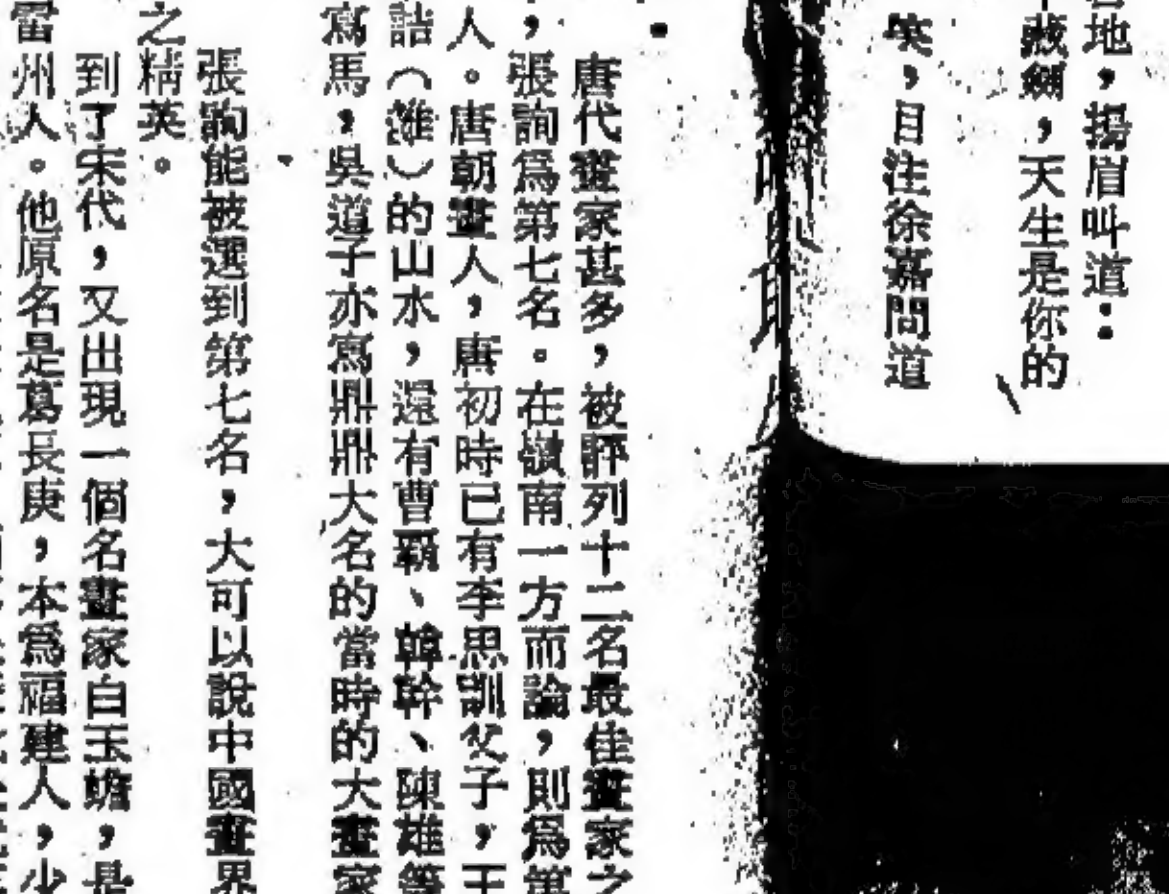 地，揚眉叫道：
藏劍，天生是你的
笑，目注徐嘉問道
唐代畫家甚多，被評列十二名最佳畫家之
，張詢爲第七名。在嶺南一方而論，則爲第
人。唐朝畫人，唐初時已有李思訓父子，王
詰（雒）的山水，還有曹霸、韓幹、陳雄等
寫馬，吳道子亦寫鼎鼎大名的當時的大畫家
張詢能被選到第七名，大可以說中國畫界
之精英。
到了宋代，又出現一個名畫家白玉蟾，是
雷州人。他原名是葛長庚，本爲福建人，少